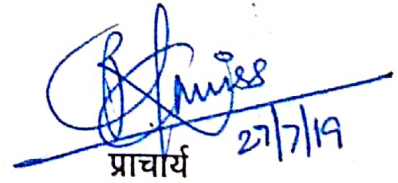 27/7/19
प्राचार्य